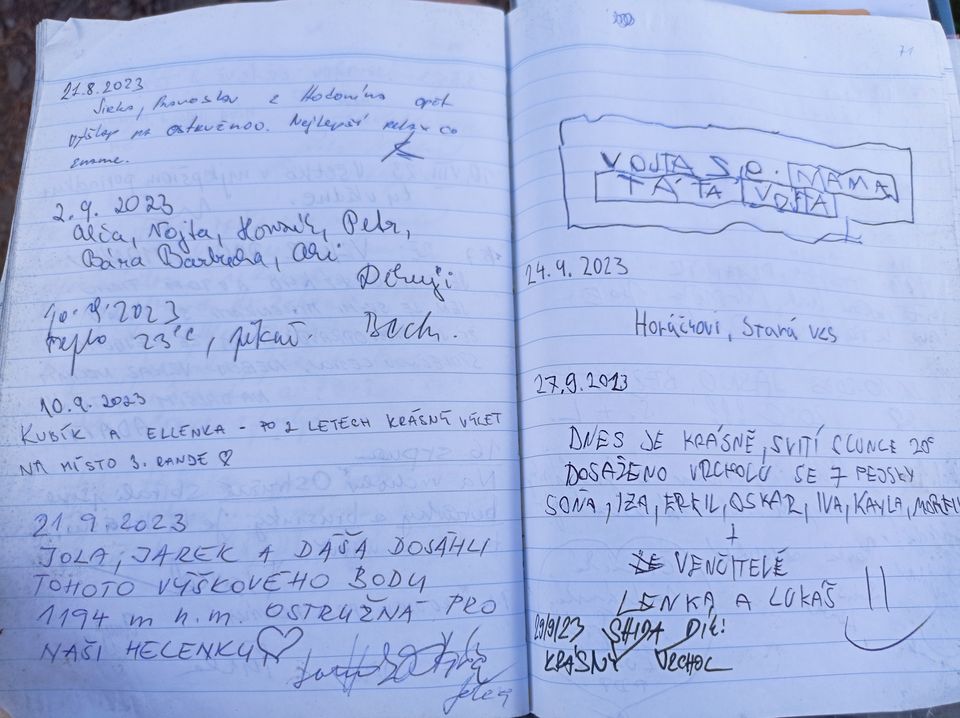 21.8.2023
z Hodonína opět
výšlap na Ostružnou. Nejlepší relax co
známe.
2.9. 2023
Vojta, Petr,
Bára
Děkuji
10.9.2023
teplo 23°C,
10.9. 2023
KUBÍK A ELLENKA - PO 2 LETECH KRÁSNÝ VÝLET
NA MÍSTO 3. RANDE ♡
21.9.2023
JOLA, JAREK A DÁŠA DOSÁHLI
TOHOTO VÝŠKOVÉHO BODU
1194 m n.m. OSTRUŽNÁ PRO
NAŠI HELENKU ♡
71
VOJTA S.O. MAMA
TÁTA VOJTA
24.9. 2023
Horáčkovi, Stará ves
27.9.2013
DNES JE KRÁSNĚ, SVÍTÍ SLUNCE 20°
DOSAŽENO VRCHOLU SE 7 PEJSKY
SOŇA, IZA, OSKAR, IVA, KAYLA,
+
VENČITELÉ
LENKA A LUKÁŠ
29/9/23
KRÁSNÝ VRCHOL